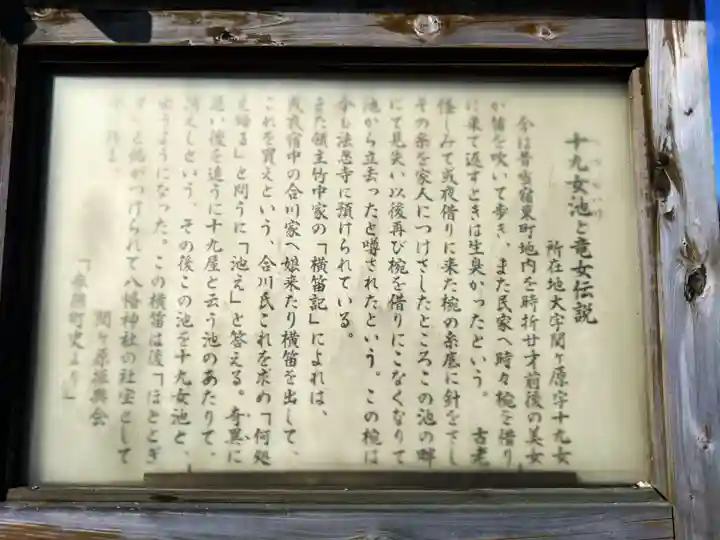 十九女池と竜女伝説
所在地大字関ヶ原字十九女
今は昔当宿東町地内を時折廿才前後の美女
が笛を吹いて歩き、また民家へ時々椀を借り
に来て返すときは生臭かったという。 古老
怪しみて或夜借りに来た椀の糸底に針をさし
その糸を家人につけさしたところこの池の畔
にて見失い以後再び椀を借りにこなくなりて
池から立去ったと噂されたという。この椀は
今も法忍寺に預けられている。
また領主竹中家の「横笛記」によれば、
或夜宿中の合川家へ娘来たり横笛を出して、
これを買えという、合川氏これを求め「何処
え帰る」と問うに「池え」と答える。奇異に
思い後を追うに十九屋と云う池のあたりて、
消えしという、その後この池を十九女池と、
云うようになった。この横笛は後「ほととぎ
す」と銘がつけられて八幡神社の社宝として
関ヶ原振興会
町史より」